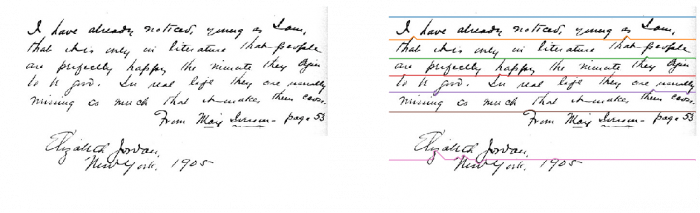 I have already noticed, young as I am,
that it is only in literature that people
are perfectly happy the minute they begin
to be good. In real life they are usually
missing so much that it makes them cross.
From May Iverson - page 53
Elizabeth Jordan,
New York, 1905
I have already noticed, young as I am,
that it is only in literature that people
are perfectly happy the minute they begin
to be good. In real life they are usually
missing so much that it makes them cross.
From May Iverson - page 53
Elizabeth Jordan,
New York, 1905